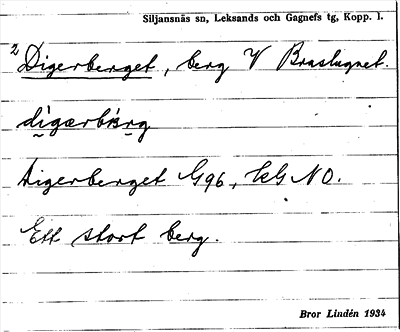 Siljansnäs sn, Leksands och Gagnefs tg, Kopp. l.
2 Digerberget, berg V Braslugnet.
digærbärg
digerberget G96, kG NO.
Ett stort berg.
Bror Lindén 1934